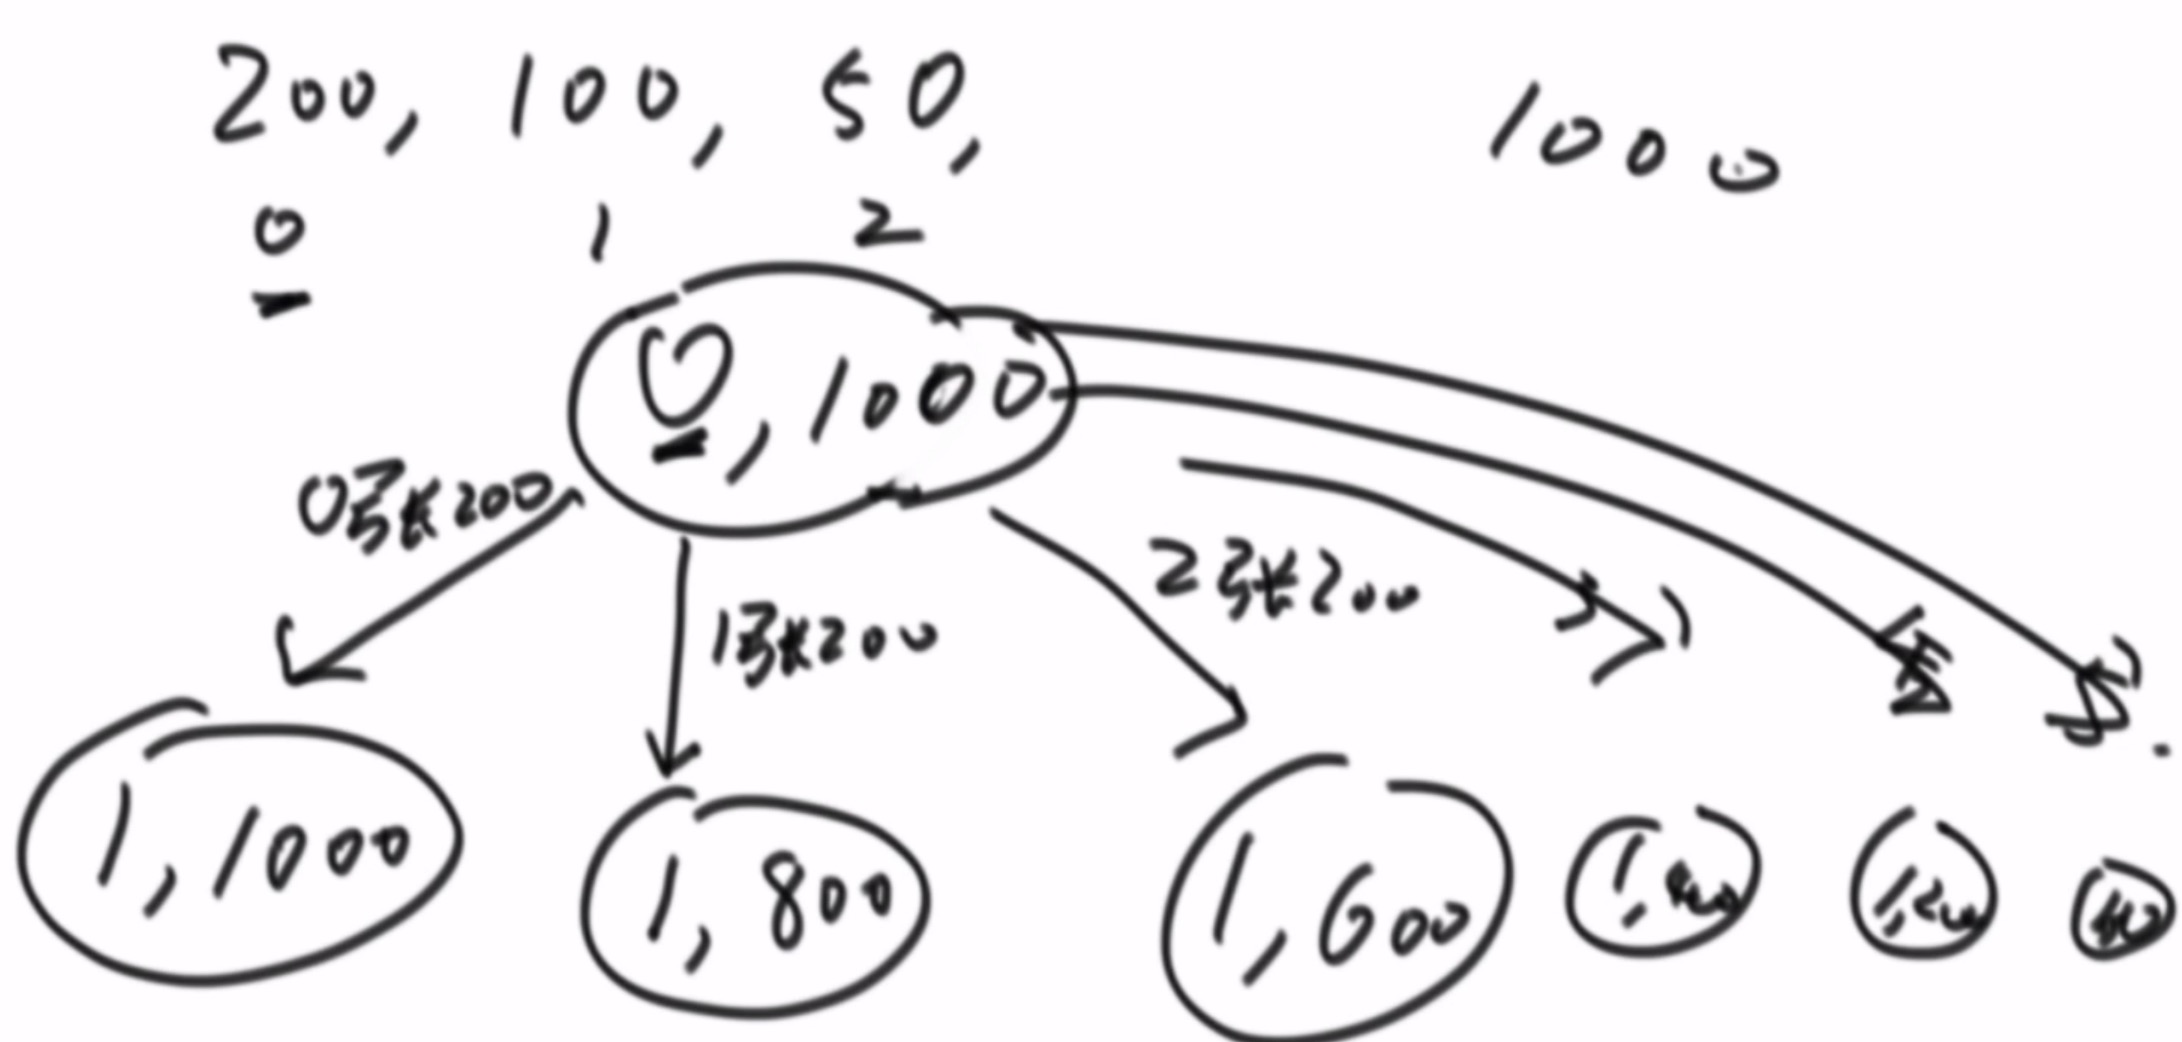 200, 100, 50,
1000
0 1 2
0, 1000
0张200
1张200
2张200
1, 1000
1, 800
1, 600
1, 400
1, 200